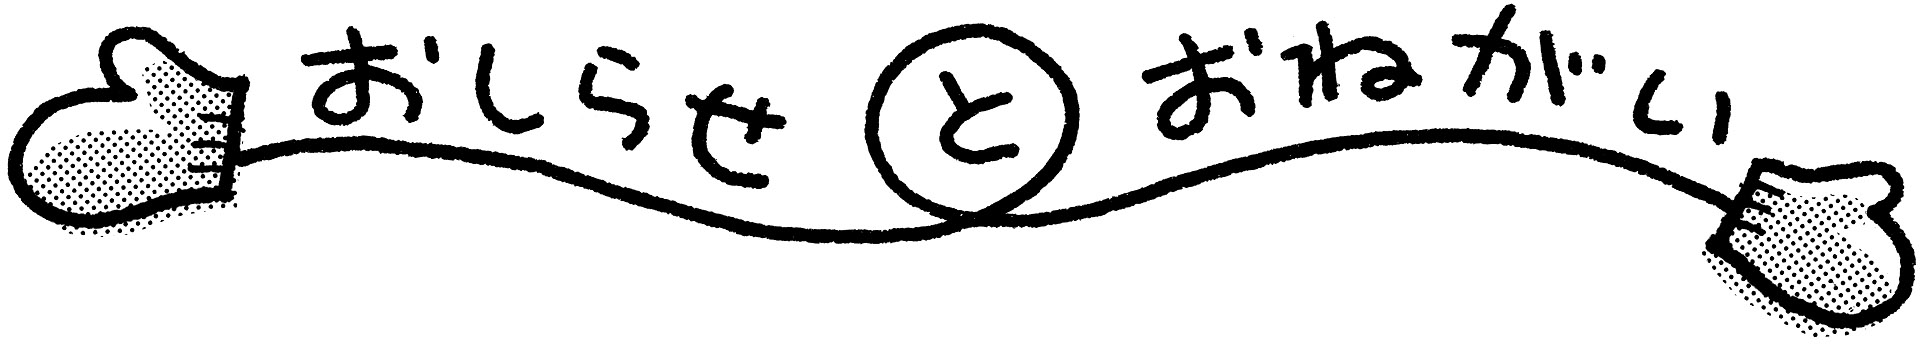 おしらせとおねがい